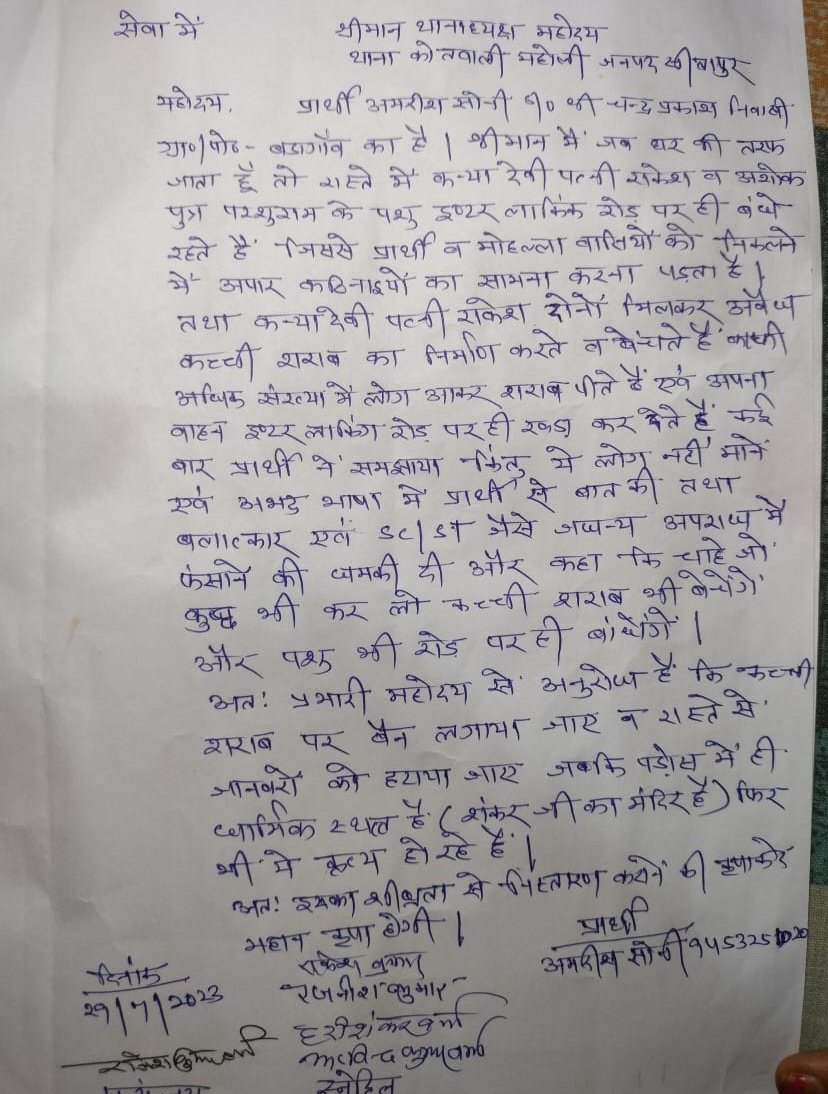 सेवा में श्रीमान थानाध्यक्ष महोदय
थाना कोतवाली महोली जनपद सीतापुर
महोदय, प्रार्थी अमरीश सोनी S/o श्री चन्द्र प्रकाश निवासी
ग्रा०/पो०- बडागाँव का है । श्रीमान मैं जब घर की तरफ
जाता हूँ तो रास्ते में कन्या देवी पत्नी राकेश व अशोक
पुत्र परशुराम के पशु इण्टर लाकिंक रोड़ पर ही बंधे
रहते है जिससे प्रार्थी व मोहल्ला वासियों को निकलने
में अपार कठिनाइयों का सामना करना पड़ता है ।
तथा कन्यादेवी पत्नी राकेश दोनों मिलकर अवैध
कच्ची शराब का निर्माण करते व बेंचते हैं काफी
अधिक संख्या में लोग आकर शराब पीते हैं एवं अपना
वाहन इण्टर लाकिंग रोड़ पर ही खडा कर देते हैं कई
बार प्रार्थी ने समझाया किंतु ये लोग नहीं माने
एवं अभद्र भाषा में प्रार्थी से बात की तथा
बलात्कार एवं SC/ST जैसे जघन्य अपराध में
फंसाने की धमकी दी और कहा कि चाहे जो
कुछ भी कर लो कच्ची शराब भी बेचेंगे
और पशु भी रोड़ पर ही बांधेंगे ।
अत: प्रभारी महोदय से अनुरोध है कि कच्ची
शराब पर बैन लगाया जाए व रास्ते से
जानवरों को हटाया जाए जबकि पड़ोस में ही
धार्मिक स्थल है (शंकर जी का मंदिर है) फिर
भी ये कृत्य हो रहे हैं ।
अत: इसका शीघ्रता से निस्तारण कराने की कृपा करें
महान कृपा होगी ।
प्रार्थी
अमरीश सोनी
दिनांक
29/7/2023
राकेश कुमार
रजनीश कुमार
हरीशंकर वर्मा
अरविन्द कुमार वर्मा
स्नेहिल